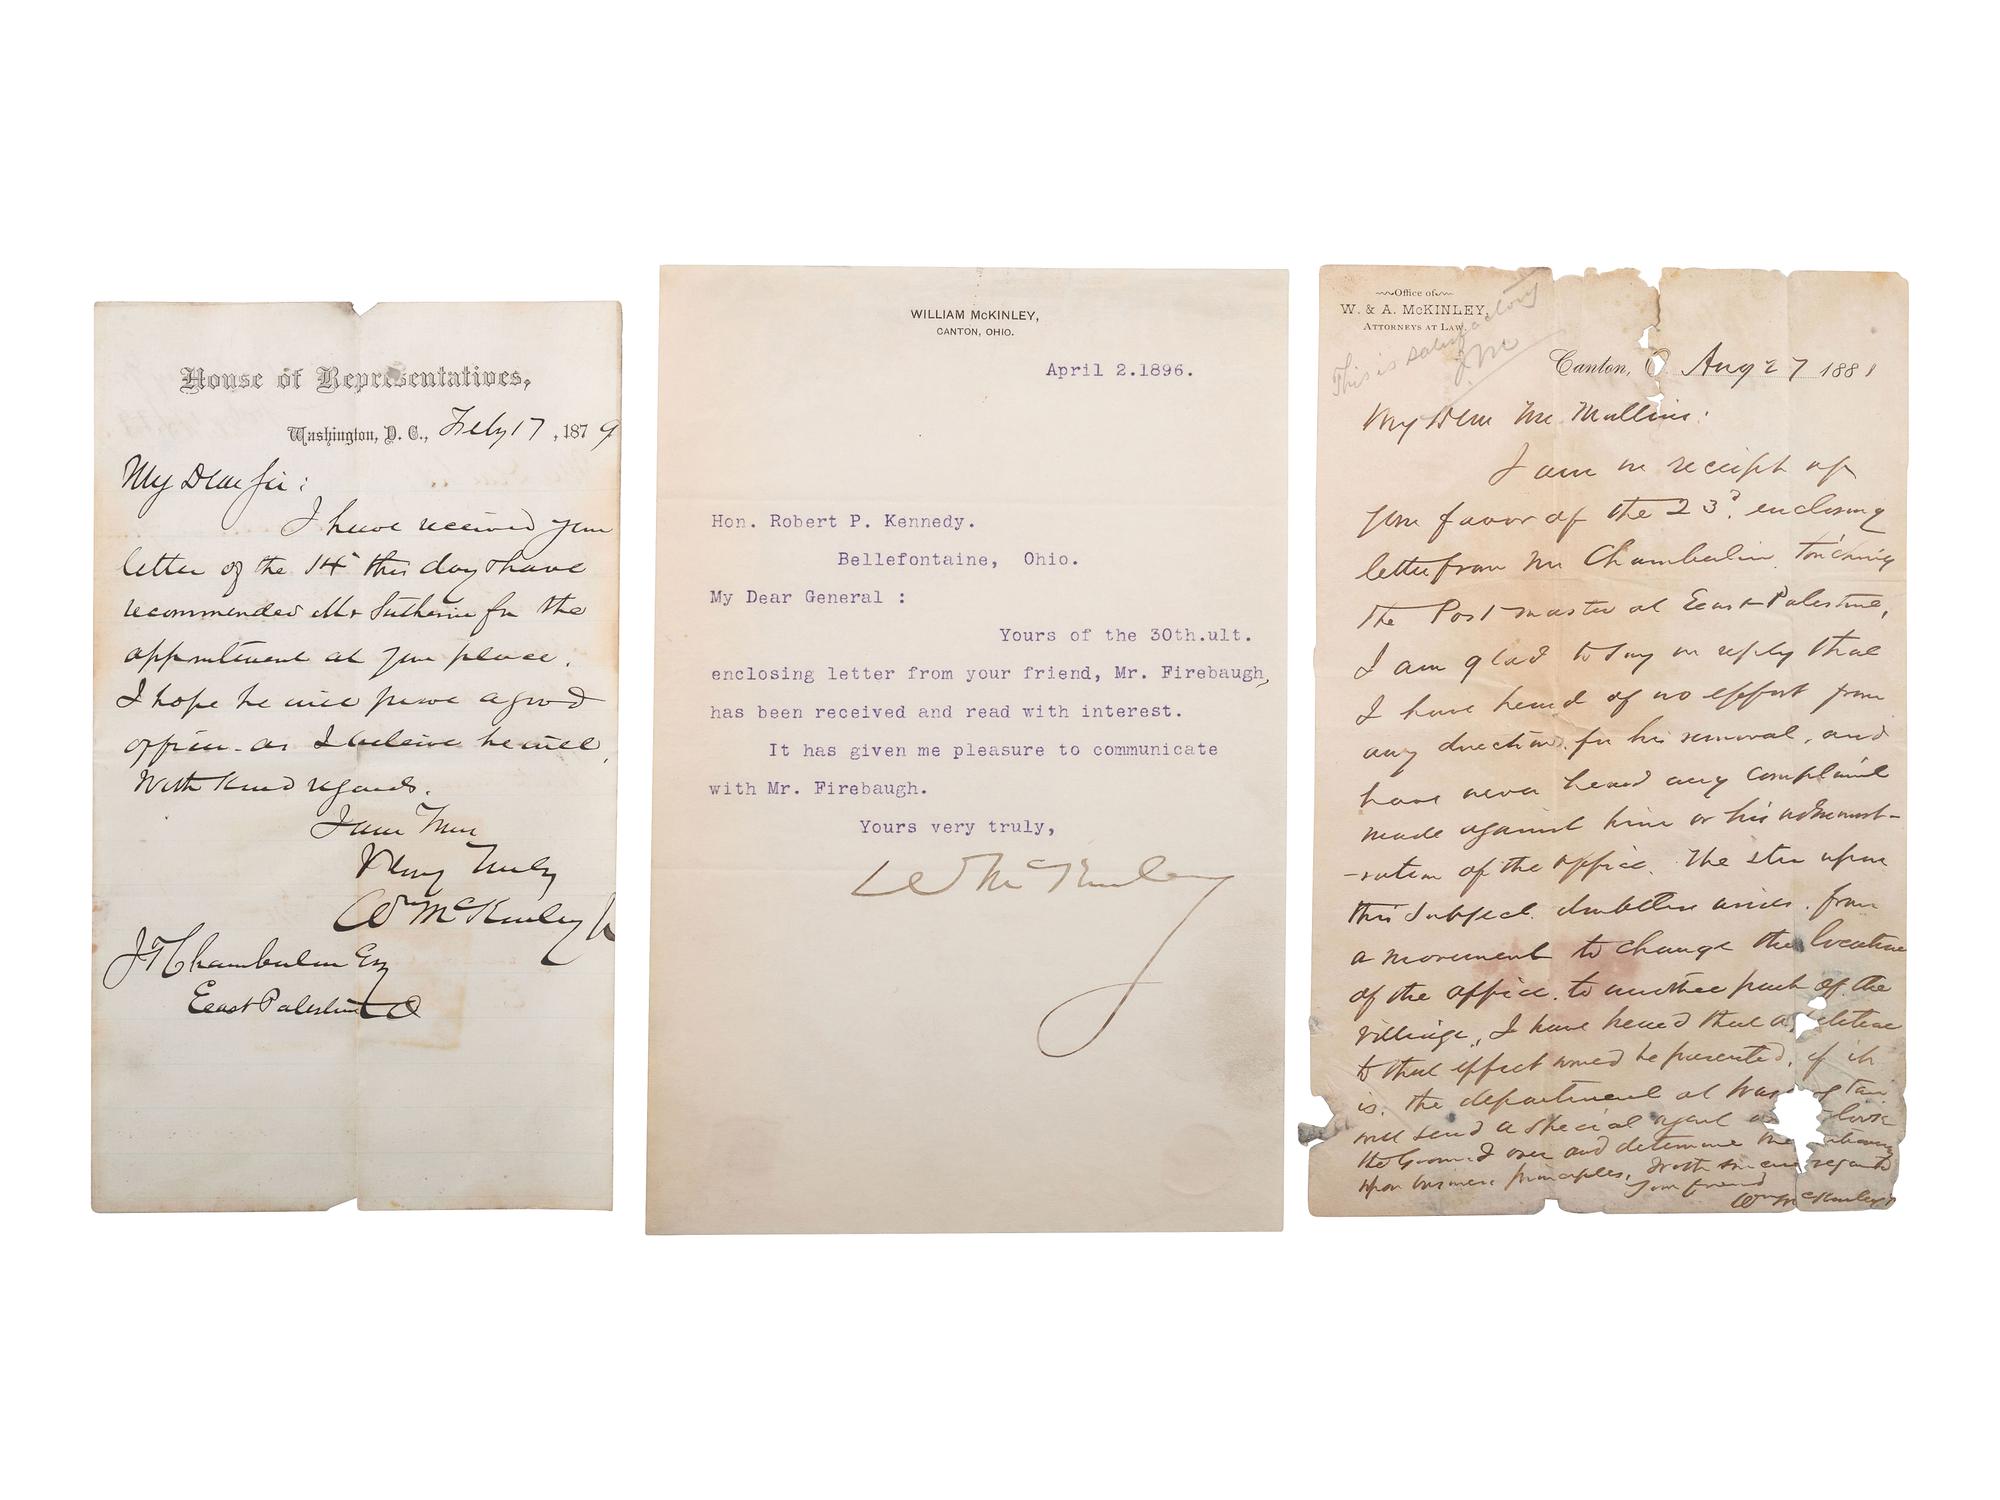 House of Representatives,
Washington, D. C., Feby 17, 1879
My Dear Sir:
I have received your
letter of the 14" this day & have
recommended Mr Sutherin for the
appointment at your place.
I hope he will prove a good
officer as I believe he will,
With kind regards.
I am
Very Truly
Wm McKinley Jr
J T Chamberlin Esq
East Palestine O
WILLIAM McKINLEY,
CANTON, OHIO.
April 2.1896.
Hon. Robert P. Kennedy.
Bellefontaine, Ohio.
My Dear General :
Yours of the 30th.ult.
enclosing letter from your friend, Mr. Firebaugh,
has been received and read with interest.
It has given me pleasure to communicate
with Mr. Firebaugh.
Yours very truly,
Wm McKinley
Office of
W. & A. McKINLEY,
ATTORNEYS AT LAW.
This is satisfactory
Canton, O. Aug 27 1881
My Dear Mr Mullins:
I am in receipt of
your favor of the 23d. enclosing
letter from Mr Chamberlin touching
the Post master at East Palestine,
I am glad to say in reply that
I have heard of no effort from
any direction for his removal, and
have never heard any complaint
made against him or his administ-
-ration of the office. The stir upon
this subject doubtless arises from
a movement to change the location
of the office. to another part of the
village, I have heard that a
to that effect would be presented, if it
is. the department at
will send a special agent look
the Ground over and determine the
upon business principles, With sincere regards
Your friend
Wm McKinley Jr